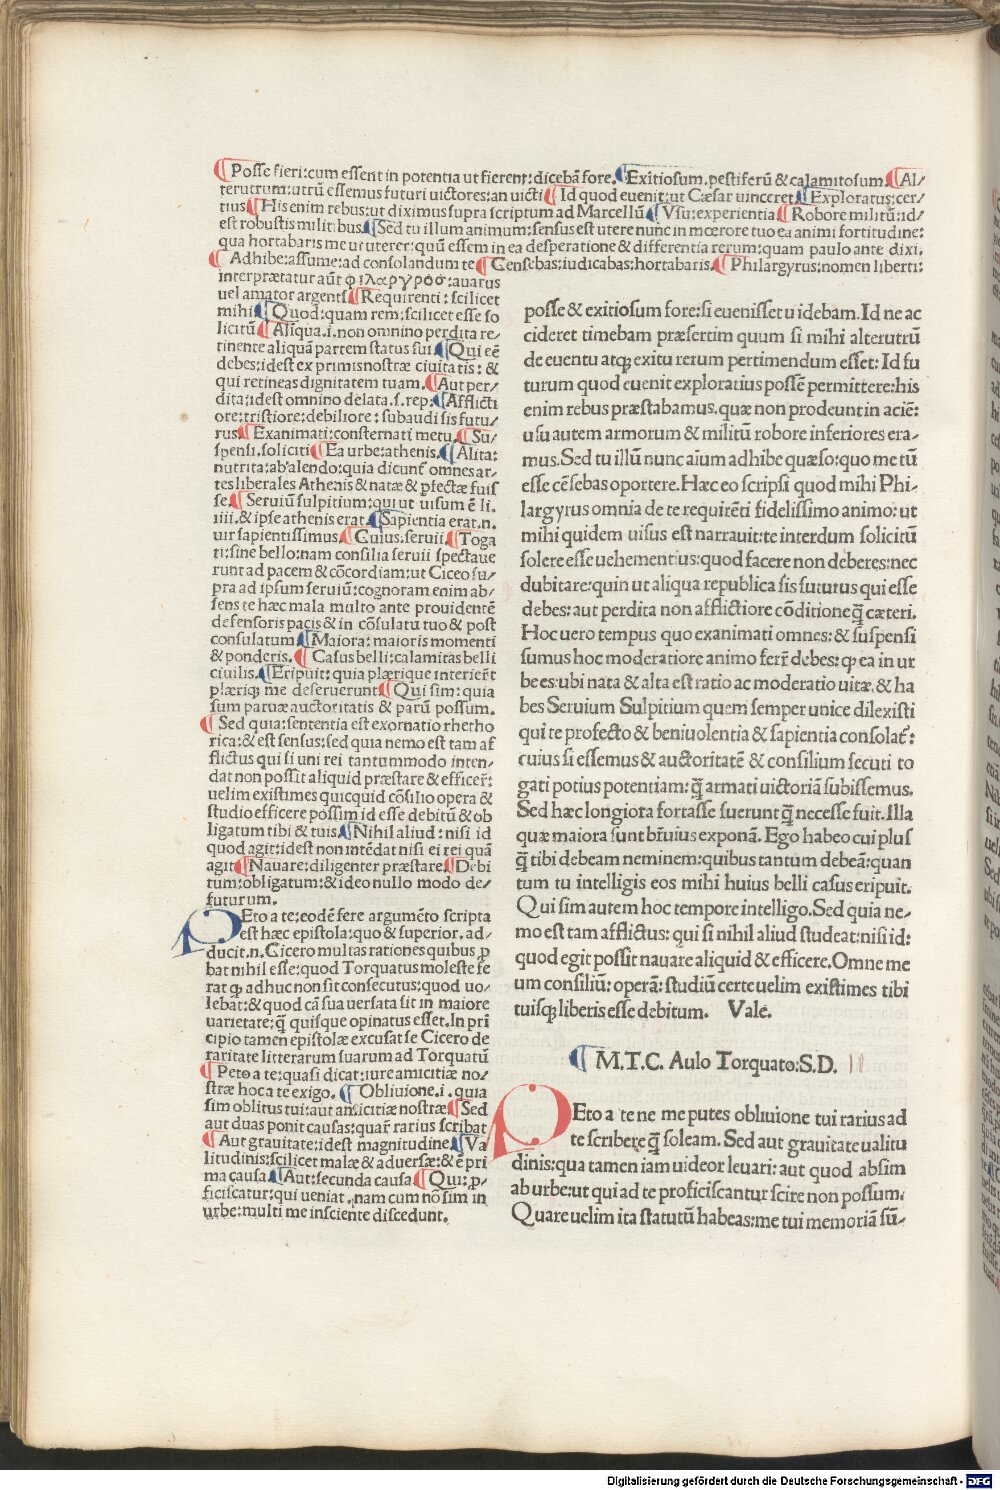 Posse fieri:cum essent in potentia ut fierent:dicebã fore. Exitiosum.pestiferũ & calamitosum. Al/
terutrum:utrũ essemus futuri uictores:an uicti Id quod euenit:ut Cæsar uinceret Exploratus:cer/
tius His enim rebus:ut diximus supra scriptum ad Marcellũ Vsu:experientia Robore militũ:id/
est robustis militibus Sed tu illum animum:sensus est utere nunc in mœrore tuo ea animi fortitudine:
qua hortabaris me ut uterer:quũ essem in ea desperatione & differentia rerum:quam paulo ante dixi.
Adhibe:assume:ad consolandum te Censebas:iudicabas:hortabaris. Philargyrus:nomen liberti:
interprætatur aũt φιλαργύροσ:auarus
uel amator argenti Requirenti:scilicet
mihi Quod:quam rem:scilicet esse so
licitũ Aliqua.i.non omnino perdita re/
tinente aliquã partem status sui Qui eẽ
debes:idest ex primis nostræ ciuitatis: &
qui retineas dignitatem tuam. Aut per/
dita:idest omnino delata.s.rep: Afflicti
ore:tristiore:debiliore:subaudi sis futu/
rus Exanimati:consternati metu. Su/
spensi.soliciti Ea urbe:athenis. Alita:
nutrita:ab alendo:quia dicunt omnes ar/
tes liberales Athenis & natæ & pfectæ fuis
se. Seruiũ sulpitium:qui ut uisum ẽ li.
iiii.& ipse athenis erat Sapientia erat.n.
uir sapientissimus. Cuius:seruii. Toga
ti:sine bello:nam consilia seruii spectaue
runt ad pacem & cõcordiam:ut Ciceo su/
pra ad ipsum seruiũ:cognoram enim ab/
sens te hæc mala multo ante prouidentẽ
defensoris pacis & in cõsulatu tuo & post
consulatum Maiora:maioris momenti
& ponderis. Casus belli:calamitas belli
ciuilis. Eripuit:quia plærique interierr̃t
plæriq; me deseruerunt Qui sim:quia
sum paruæ auctoritatis & parũ possum.
Sed quia:sententia est exornatio rhetho
rica:& est sensus:sed quia nemo est tam af
flictus qui si uni rei tantummodo inten/
dat non possit aliquid præstare & efficer̃:
uelim existimes quicquid cõsilio opera &
studio efficere possim id esse debitũ & ob
ligatum tibi & tuis Nihil aliud:nisi id
quod agit:idest non intẽdat nisi ei rei quã
agit Nauare:diligenter præstare. Debi
tum:obligatum:& ideo nullo modo de/
futurum.
PEto a te:eodẽ fere argumẽto scripta
est hæc epistola:quo & superior.ad/
ducit.n.Cicero multas rationes quibus p
bat nihil esse:quod Torquatus moleste fe
rat q; adhuc non sit consecutus:quod uo/
lebat:& quod cã sua uersata sit in maiore
uarietate:q̃ quisque opinatus esset.In pri
cipio tamen epistolæ excusat se Cicero de
raritate litterarum suarum ad Torquatũ
Peto a te:quasi dicat:iure amicitiæ no/
stræ hoc a te exigo. Obliuione.i.quia
sim oblitus tui:aut amicitiæ nostræ Sed
aut duas ponit causas:quar̃ rarius scribat
Aut grauitate:idest magnitudine Va
litudinis:scilicet malæ & aduersæ:& ẽ pri
ma causa Aut:secunda causa Qui:p/
ficiscatur:qui ueniat.nam cum nõ sim in
urbe:multi me insciente discedunt.
posse & exitiosum fore:si euenisset uidebam.Id ne ac
cideret timebam præsertim quum si mihi alterutrũ
de euentu atq; exitu rerum pertimendum esset:Id fu
turum quod euenit exploratius possẽ permittere:his
enim rebus præstabamus.quæ non prodeunt in aciẽ:
usu autem armorum & militũ robore inferiores era/
mus.Sed tu illũ nunc aĩum adhibe quæso:quo me tũ
esse cẽsebas oportere.Hæc eo scripsi quod mihi Phi/
largyrus omnia de te requirẽti fidelissimo animo:ut
mihi quidem uisus est narrauit:te interdum solicitũ
solere esse uehementius:quod facere non deberes:nec
dubitare:quin ut aliqua republica sis futurus qui esse
debes:aut perdita non afflictiore cõditione q̃ cæteri.
Hoc uero tempus quo exanimati omnes:& suspensi
sumus hoc moderatiore animo ferr̃ debes:q; ea in ur
be es:ubi nata & alta est ratio ac moderatio uitæ.& ha
bes Seruium Sulpitium quem semper unice dilexisti
qui te profecto & beniuolentia & sapientia consolat̃:
cuius si essemus & auctoritatẽ & consilium secuti to
gati potius potentiam:q̃ armati uictoriã subissemus.
Sed hæc longiora fortasse fuerunt q̃ necesse fuit.Illa
quæ maiora sunt br̃uius exponã.Ego habeo cui plus
q̃ tibi debeam neminem:quibus tantum debeã:quan
tum tu intelligis eos mihi huius belli casus eripuit.
Qui sim autem hoc tempore intelligo.Sed quia ne/
mo est tam afflictus:qui si nihil aliud studeat:nisi id:
quod egit possit nauare aliquid & efficere.Omne me
um consiliũ:operã:studiũ certe uelim existimes tibi
tuisq; liberis esse debitum. Vale.
M.T.C. Aulo Torquato:S.D.
PEto a te ne me putes obliuione tui rarius ad
te scribere q̃ soleam. Sed aut grauitate ualitu
dinis:qua tamen iam uideor leuari:aut quod absim
ab urbe:ut qui ad te proficiscantur scire non possum.
Quare uelim ita statutũ habeas:me tui memoriã sũ/
Digitalisierung gefördert durch die Deutsche Forschungsgemeinschaft - DFG